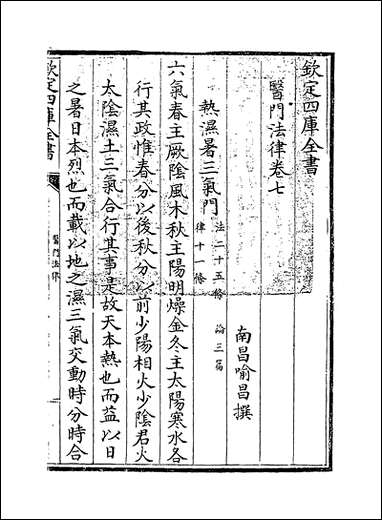 欽定四庫全書
醫門法律卷七
南昌喻昌撰
熱濕暑三氣門 法二十五條 論三篇 律十一條
六氣春主厥陰風木秋主陽明燥金冬主太陽寒水各
行其政惟春分以後秋分以前少陽相火少陰君火
太陰濕土三氣合行其事是故天本熱也而益以日
之暑日本烈也而載以地之濕三氣交動時分時合
欽定四庫全書
醫門法律